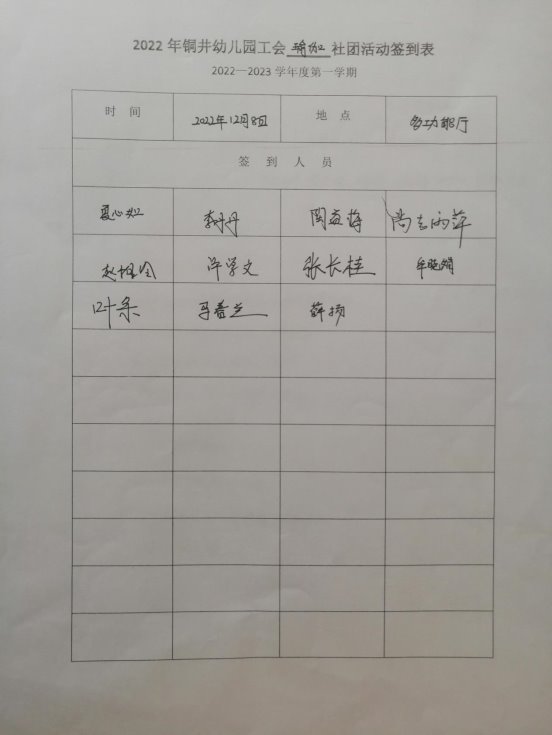 2022年铜井幼儿园工会 瑜伽 社团活动签到表
2022—2023学年度第一学期
时 间 2022年12月8日 地 点 多功能厅
签 到 人 员
夏心如 李丹丹
许学文 张长桂 牟晓娟
叶余 马普兰 薛杨